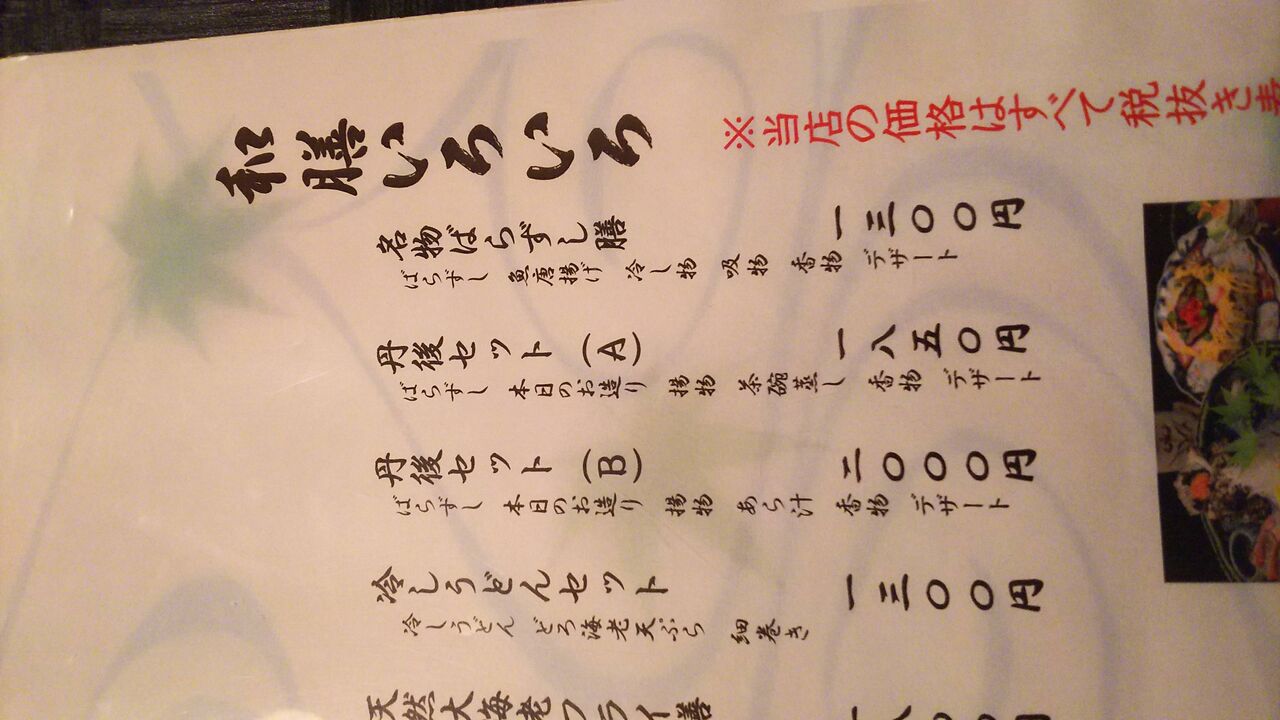 和膳いろいろ
※当店の価格はすべて税抜き
名物ばらずし膳 一三〇〇円
ばらずし 魚唐揚げ 冷し物 吸物 香物 デザート
丹後セット (A) 一八五〇円
ばらずし 本日のお造り 揚物 茶碗蒸し 香物 デザート
丹後セット (B) 二〇〇〇円
ばらずし 本日のお造り 揚物 あら汁 香物 デザート
冷しうどんセット 一三〇〇円
冷しうどん どろ海老天ぷら 細巻き
天然大海老フライ膳